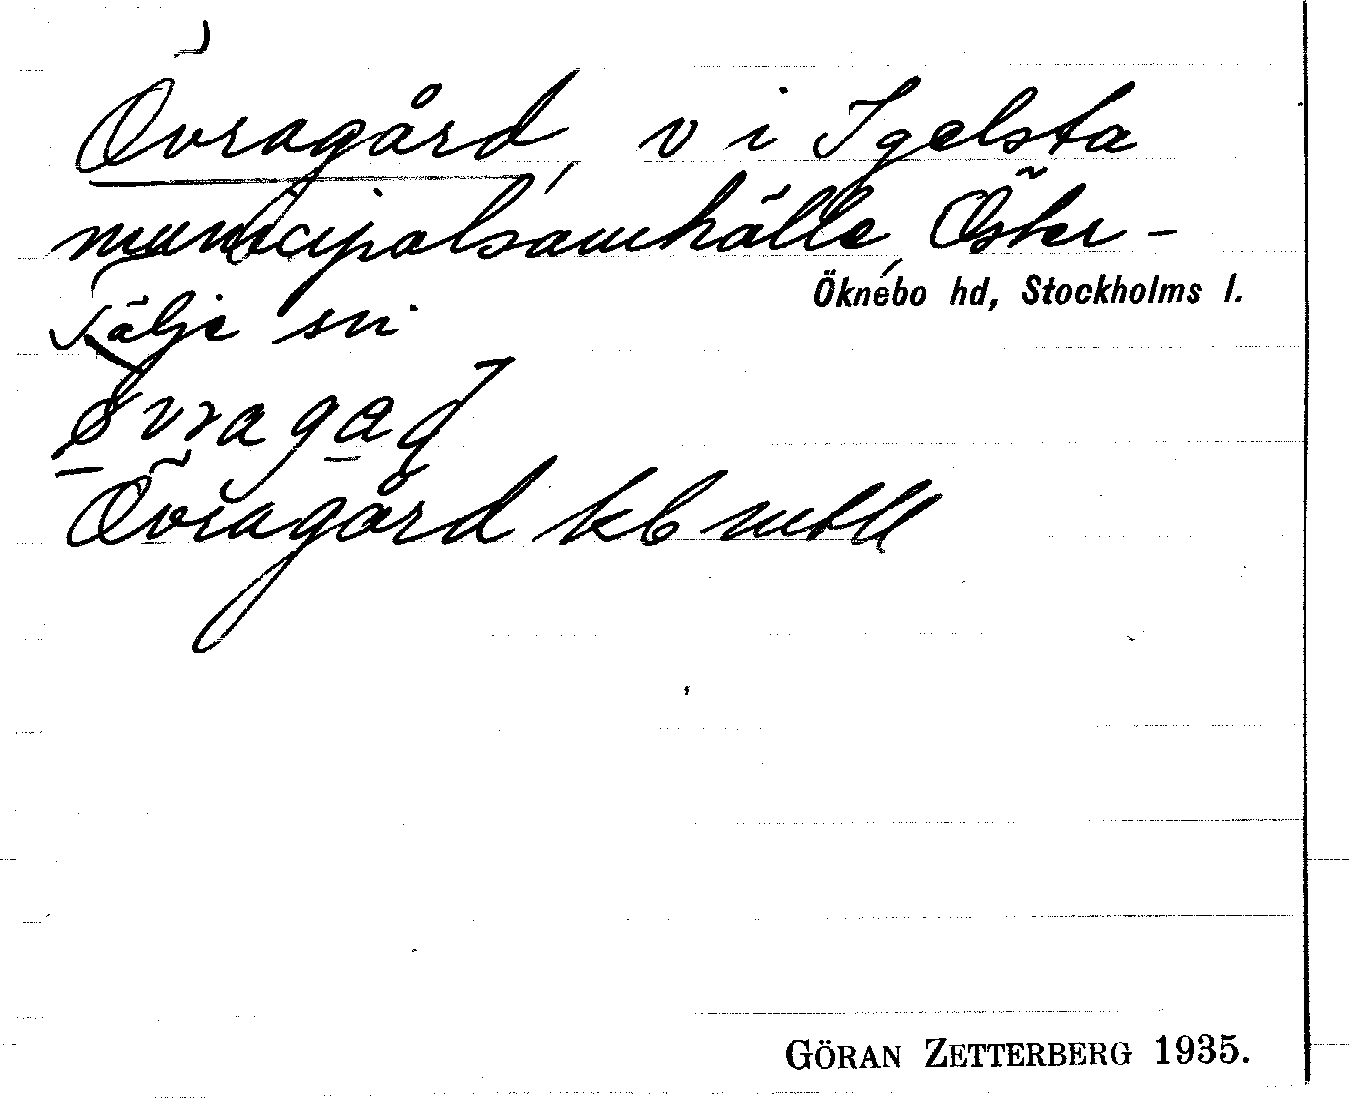 Övragård, v i Igelsta
municipalsamhälle, Öster-
Öknebo hd, Stockholms l.
Tälje sn
Övragård kb
GÖRAN ZETTERBERG 1935.